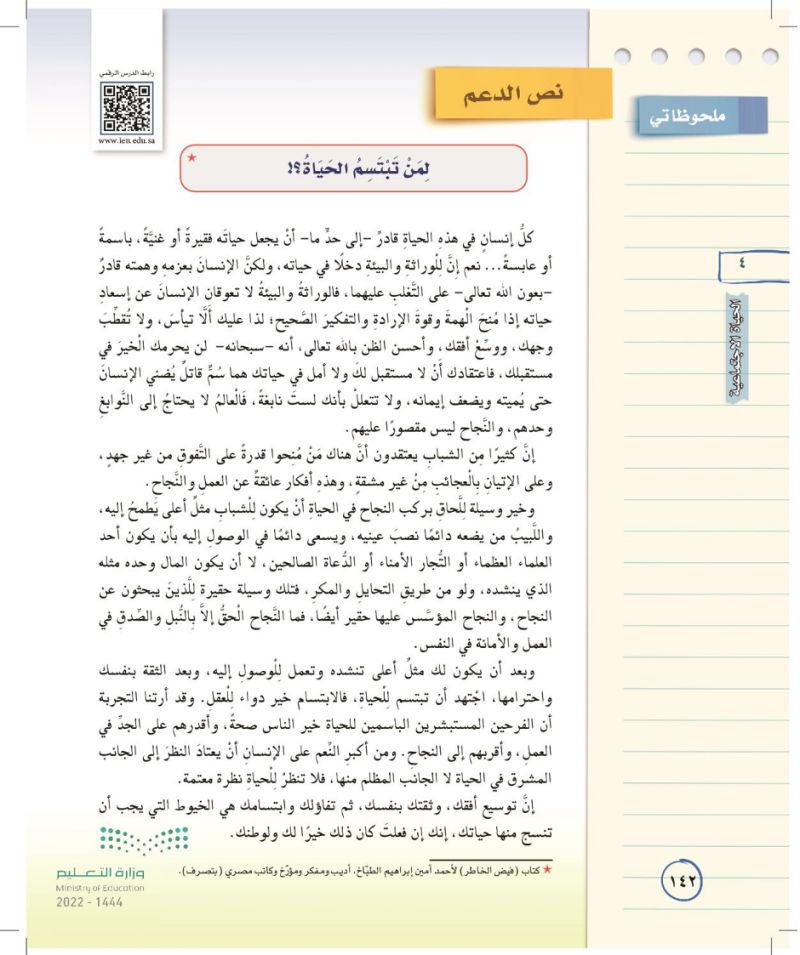 رابط الدرس الرقمي
www.ien.edu.sa
نص الدعم
ملحوظاتي
لِمَنْ تَبْتَسِمُ الحَيَاةُ؟! ★
كلُّ إنسانٍ في هذهِ الحياةِ قادرٌ –إلى حدٍّ ما– أنْ يجعل حياتَه فقيرةً أو غنيَّةً، باسمةً
أو عابسةً... نعم إنَّ لِلْوراثةِ والبيئةِ دخلًا في حياته، ولكنَّ الإنسانَ بعزمهِ وهمته قادرٌ
–بعون الله تعالى– على التَّغلبِ عليهما، فالوراثةُ والبيئةُ لا تعوقان الإنسانَ عن إسعادِ
حياته إذا مُنِحَ الْهمةَ وقوةَ الإرادةِ والتفكيرَ الصَّحيح؛ لذا عليك ألَّا تيأسَ، ولا تُقطِّبَ
وجهك، ووسِّعْ أفقك، وأحسن الظن بالله تعالى، أنه –سبحانه– لن يحرمك الْخيرَ في
مستقبلك، فاعتقادك أنْ لا مستقبل لكَ ولا أمل في حياتك هما سُمٌّ قاتلٌ يُضني الإنسانَ
حتى يُميته ويضعف إيمانه، ولا تتعللْ بأنك لستَ نابغةً، فَالْعالمُ لا يحتاجُ إلى النَّوابغِ
وحدهم، والنَّجاح ليس مقصورًا عليهم.
إنَّ كثيرًا مِن الشبابِ يعتقدون أنَّ هناك مَنْ مُنِحوا قدرةً على التَّفوقِ من غير جهدٍ،
وعلى الإتيانِ بِالْعجائبِ مِنْ غير مشقةٍ، وهذهِ أفكار عائقةٌ عن العملِ والنَّجاح.
وخير وسيلة لِلَّحاقِ بركب النجاح في الحياةِ أنْ يكون لِلْشبابِ مثلٌ أعلى يَطمحُ إليه،
واللَّبيبُ من يضعه دائمًا نصبَ عينيه، ويسعى دائمًا في الوصولِ إليه بأن يكون أحد
العلماء العظماء أو التُّجار الأمناء أو الدُّعاة الصالحين، لا أن يكون المال وحده مثله
الذي ينشده، ولو من طريقِ التحايلِ والمكرِ، فتلك وسيلة حقيرة لِلَّذينَ يبحثون عن
النجاح، والنجاح المؤسَّس عليها حقير أيضًا، فما النَّجاح الْحقُّ إلاَّ بِالنُّبلِ والصِّدقِ في
العمل والأمانة في النفس.
وبعد أن يكون لك مثلٌ أعلى تنشده وتعمل لِلْوصولِ إليه، وبعد الثقة بنفسك
واحترامها، اجْتهد أن تبتسم لِلْحياةِ، فالابتسام خير دواء لِلْعقلِ. وقد أرتنا التجربة
أن الفرحين المستبشرين الباسمين للحياة خير الناس صحةً، وأقدرهم على الجدِّ في
العمل، وأقربهم إلى النجاح. ومن أكبرِ النِّعم على الإنسانِ أنْ يعتادَ النظرَ إلى الجانب
المشرق في الحياة لا الجانب المظلم منها، فلا تنظرْ لِلْحياةِ نظرة معتمة.
إنَّ توسيع أفقك، وثقتك بنفسك، ثم تفاؤلك وابتسامك هي الخيوط التي يجب أن
تنسج منها حياتك، إنك إن فعلتَ كان ذلك خيرًا لك ولوطنك.
★ كتاب (فيض الخاطر) لأحمد أمين إبراهيم الطبّاخ، أديب ومفكر ومؤرّخ وكاتب مصري (بتصرف).
٤
الحياة الاجتماعية
١٤٢
وزارة التعليم
Ministry of Education
2022 - 1444